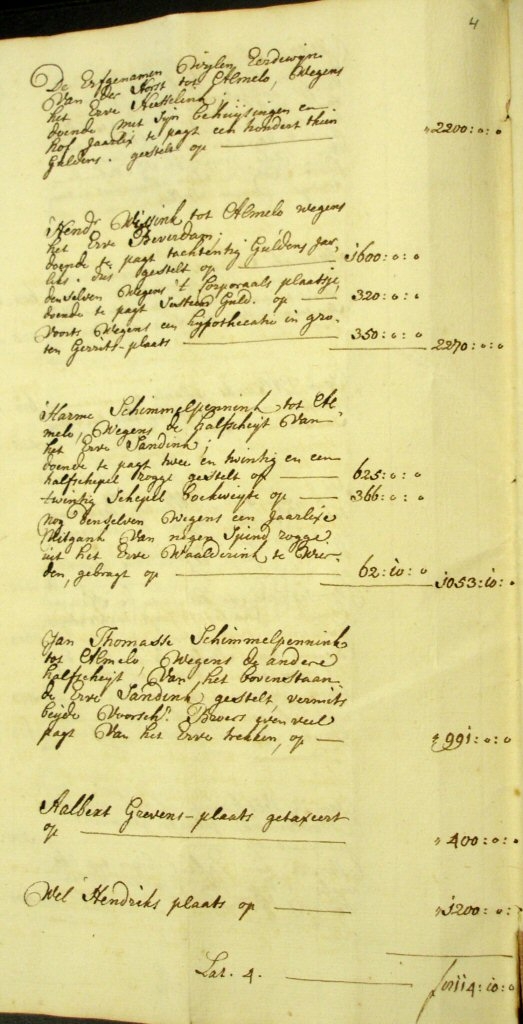 4
De Erfgenamen Wylen Eerdewyn
Van der Horst tot Almelo, Wegens
het Erve Hesselink;
doende met syn behuysingen en
hof Jaarlix te pagt een hondert thien
Guldens. gestelt op 2200:0:0
Hendr. Wissink tot Almelo wegens
het Erve Beverdam;
doende te pagt tachtentig Guldens Jar-
lix. dus gestelt op 1600:0:0
denselven Wegens 't Corporaals plaatsje
doende te pagt Sestien Guld. op 320:0:0
Voorts Wegens een hypothecatie in gro-
ten Gerrits-plaats 350:0:0 2270:0:0
Harme Schimmelpennink tot Al-
melo, Wegens de halfscheyt Van
het Erve Sandink;
doende te pagt twee en twintig en een
halfschepel rogge gestelt op 625:0:0
twintig Schepel boekweyte op 366:0:0
nog denselven Wegens een Jaarlixe
Uitgank Van negen Spind rogge
uit het Erve Waalderink te Wier-
den, gebragt op 62:10:0 1053:10:0
Jan Thomasse Schimmelpennink
tot Almelo, Wegens de andere
halfscheyt Van het bovenstaan-
de Erve Sandink gestelt, vermits
beyde Voorsch. Broers even veel
pagt Van het Erve trekken, op 991:0:0
Aalbert Grevens-plaats getaxeert
op 400:0:0
Wel Hendriks plaats op 1200:0:0
Lat. 4. 8114:10:0